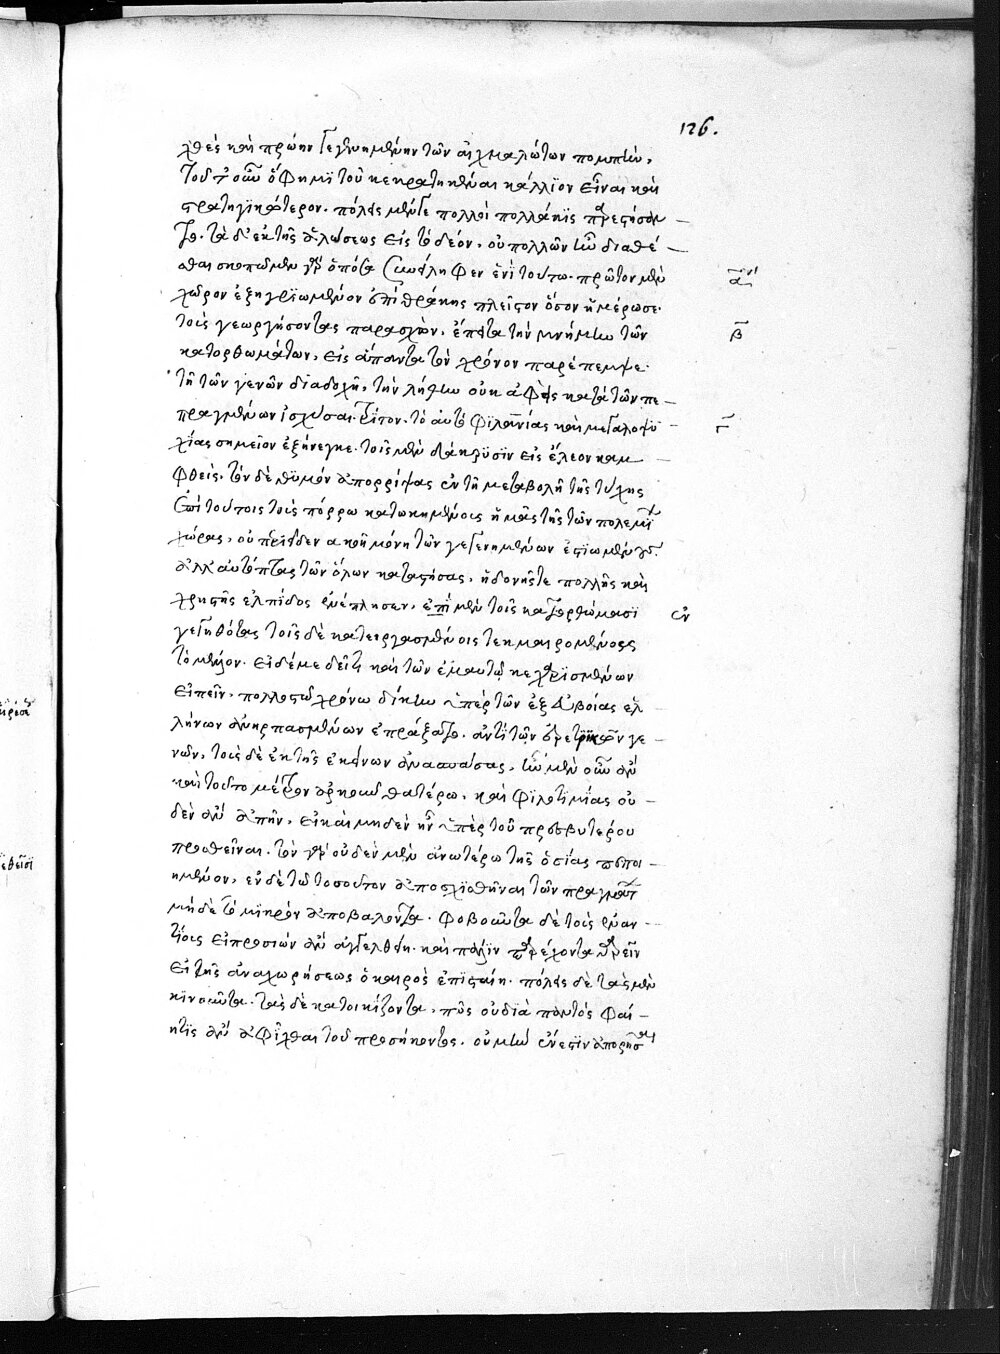 126.
χθὲς καὶ πρώην γεγενημένην τῶν αἰχμαλώτων πομπὴν,
τοῦτ' οὖν ὅ φημι τοῦ κεκρατηκέναι κάλλιον εἶναι καὶ
στρατηγικώτερον. πόλεις μέν γε πολλοὶ πολλάκις παρεστήσαν
το. τὰ δ' ἐκ τῆς ἁλώσεως εἰς τὸ δέον, οὐ πολλῶν ἦν διαθέ
σθαι σκοπῶμεν γὰρ ὁπόσα συνείληφεν ἑνὶ τούτω. πρῶτον μὲν
α
χῶρον ἐξηγριωμένον ἐπὶ θράκης πλεῖστον ὅσον ἡμέρωσε
τοὺς γεωργήσοντας παρασχὼν, ἔπειτα τὴν μνήμην τῶν
β
κατορθωμάτων, εἰς ἅπαντα τὸν χρόνον παρέπεμψε
τῆ τῶν γενῶν διαδοχῆ, τὴν λήθην οὐκ ἀφεὶς κατὰ τῶν πε
πραγμένων ἰσχύσαι. τρίτον. τὸ αὐτὸ φιλανίας καὶ μεγαλοψυ
γ
χίας σημεῖον ἐξήνεγκε. τοῖς μὲν διάκλυσιν εἰς ἔλεον καμ
φθεὶς, τὸν δὲ θυμὸν ἀπορρίψας ἐν τῆ μεταβολῆ τῆς τύχης
ἐπὶ τούτοις τοὺς πόρρω κατωκημένους ἡμᾶς τῆς τῶν πολεμί
χώρας, οὐ περιεῖδεν ἀκοῆ μόνη τῶν γεγενημένων
ἀλλ' αὐτόπτας τῶν ὅλων καταστήσας, ἡδονῆς τε πολλῆς καὶ
χρηστῆς ἐλπίδος ἐνέπλησεν, ἐπὶ μὲν τοῖς κατορθώμασι
ἐν
γεγηθότας τοῖς δὲ κατειργασμένοις τεκμαιρομένους
τὸ μέλλον. εἰ δέ με δεῖ τι καὶ τῶν ἐμαυτῷ κεχαρισμένων
εἰπεῖν, πολλοστῶ χρόνω δίκην ὑπὲρ τῶν ἐξ εὐβοίας ἑλ
λήνων ἀνηρπασμένων ἐπράξατο, ἀντὶ τῶν ἐρετρικῶν γε
νῶν, τοὺς δὲ ἐκ τῆς ἐκείνων ἀναπαύσας, ἦν μὲν οὖν ἂν
καὶ τοῦτο μέτρον ἀρκοῦν θατέρω, καὶ φιλοτιμίας οὐ
δὲν ἂν ἀπῆν, εἰ καὶ μηδὲν ἦν ὑπὲρ τοῦ πρεσβυτέρου
προσθεῖναι. τὸν γὰρ οὐδὲν μὲν ἀνωτέρω τῆς ὁσίας πεποι
ημένον, ἐν δὲ τῶ τοσοῦτον ἀποσχισθῆναι τῶν πραγμάτ
μηδὲ τὸ μικρὸν ἀποβαλόντα. φοβοῦντα δὲ τοὺς ἐναν
τίους εἰ προσιὼν ἂν ἀγγελθείη. καὶ πάλιν παρέχοντα θαρρεῖν
εἰ τῆς ἀναχωρήσεως ὁ καιρὸς ἐπισταίη. πόλεις δὲ τὰς μὲν
κινοῦντα. τὰς δὲ κατοικίζοντα, πῶς οὐ διὰ παντὸς φαί
ητις ἂν ἀφῖχθαι τοῦ προσήκοντος. οὐ μὴν ἔνεστιν ἀπορῆσαι